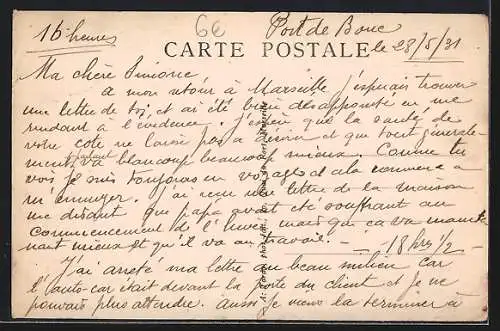 16 heures 6€ Port de Bouc
CARTE POSTALE le 28/5/31
Ma chère Simone
A mon retour à Marseille j'espérais trouver
une lettre de toi et ai été bien désappointé en me
rendant à l'évidence. J'espère que la santé de
votre côté ne laisse pas à désirer et que tout
va beaucoup mieux. Comme tu
vois je suis toujours en voyages et cela commence à
m'ennuyer. J'ai reçu une lettre de la maison
me disant que papa avait été souffrant au
commencement de l' mais que ça va mainte
nant mieux et qu'il va au travail. — 18 hrs 1/2 —
J'ai arrêté ma lettre au beau milieu car
l'auto-car était devant la porte du client et je ne
pouvais plus attendre. Aussi je viens la terminer à